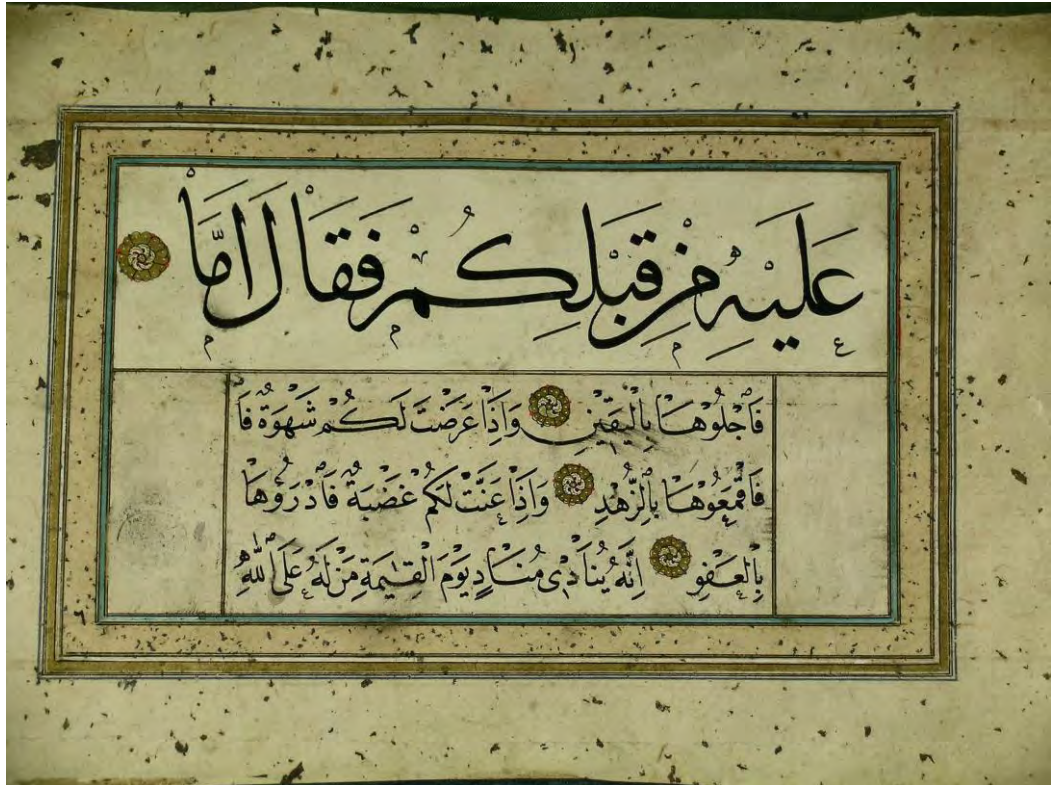 عَلَيْهِ مِنْ قَبْلِكُمْ فَقَالَ اَمَّا
فَاجْلُوْهَا بِالْيَقِيْنِ وَاِذَا عَرَضَتْ لَكُمْ شَهْوَةٌ فَا
فَاقْمَعُوْهَا بِالزُّهْدِ وَاِذَا عَنَّتْ لَكُمْ غَضْبَةٌ فَادْرَؤُهَا
بِالْعَفْوِ اِنَّهُ يُنَادٖى مُنَادٍ يَوْمَ الْقِيٰمَةِ مَنْ لَهُ عَلَى اللّٰهِ
٦